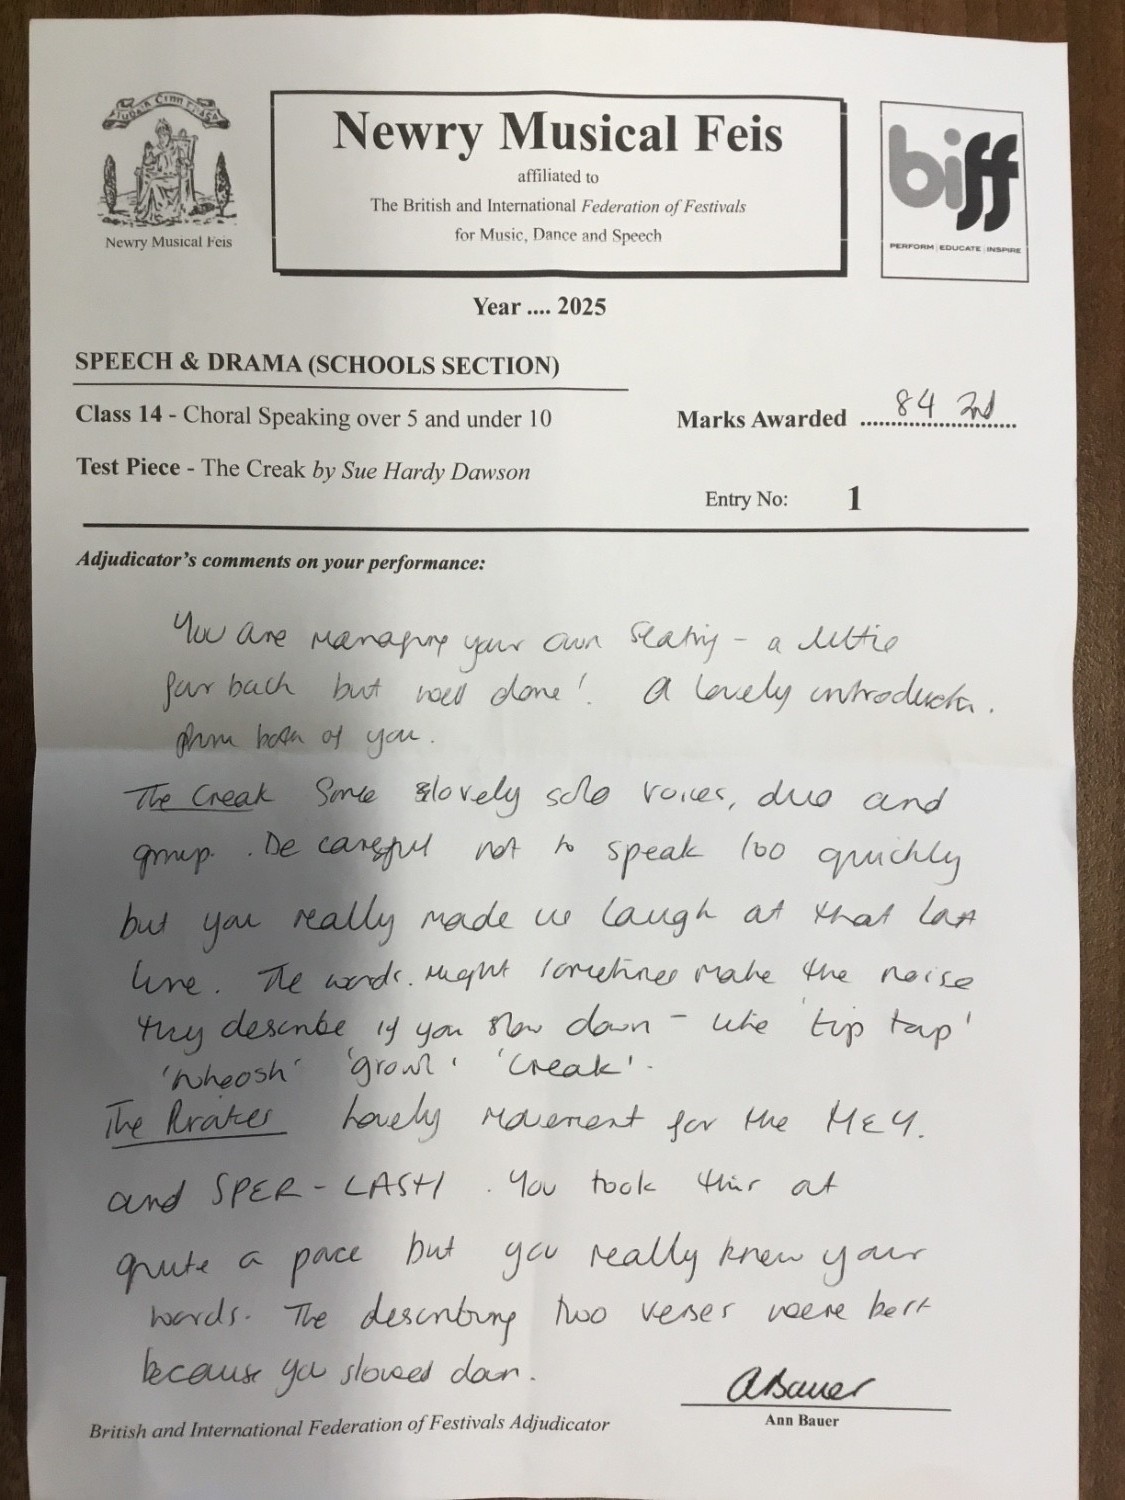 Newry Musical Feis
Newry Musical Feis
affiliated to
The British and International Federation of Festivals
for Music, Dance and Speech
biff
PERFORM | EDUCATE | INSPIRE
Year .... 2025
SPEECH & DRAMA (SCHOOLS SECTION)
Class 14 - Choral Speaking over 5 and under 10
Marks Awarded 84 2nd
Test Piece - The Creak by Sue Hardy Dawson
Entry No: 1
Adjudicator's comments on your performance:
You are managing your own seating - a little
far back but well done! A lovely introduction.
from both of you.
The Creak Some lovely solo voices, duo and
group. Be careful not to speak too quickly
but you really made us laugh at that last
line. The words. might sometimes make the noise
they describe if you slow down - like 'tip tap'
'whoosh' 'growl' 'creak'.
The Pirates Lovely movement for the HEY.
and SPER-LASH. You took this at
quite a pace but you really knew your
words. The describing two verses were best
because you slowed down.
ABauer
Ann Bauer
British and International Federation of Festivals Adjudicator